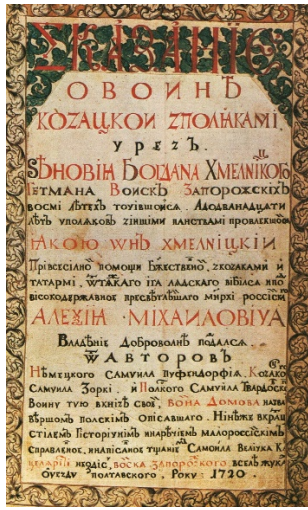 СКАЗАНІЕ
О ВОИНѢ
КОZАЦКОИ ZПОЛѦКАМИ,
УРЕZЪ
ЗѢНОВІѦ БОГДАНА ХМЕЛНІЦКОГО
ГЕТМАНА ВОИСКЪ ЗАПОРОЖСКІХЪ
ВОСМИ ЛѢТЕХЪ ТОЧІВШОЙСѦ. АДОДВАНАДЦАТИ
ЛѢТЪ УПОЛѦКОВЪ ZІНШИМИ ПАНСТВАМИ ПРОВЛЕКШОЙ
ІАКОЮ ѠНЪ ХМЕЛНІЦКІЙ
ПРІВСЕСІЛНО ПОМОЩИ БЖЕСТВЕНО, ZКОZАКАМИ И
ТАТАРМИ, ѾТѦЖКАГО ІГА ЛАДСКАГО ВЫБІЛСѦ ИПО
ВІСОКОДЕРЖАВНОЕ ПРЕСВѢТЛѢШАГО МНРХИ РОССІЙСК
АЛЕѮІѦ МІХАИЛОВІЧА
ВЛАДѢНІЕ ДОБРОВОЛНѢ ПОДАЛСѦ.
ѾАВТОРОВЪ
НѢМЕЦКОГО САМУИЛА ПУФЕНДОРФІѦ, КОZАЦКО
САМУИЛА ЗОРКІ И ПОЛСКОГО САМУИЛА ТВАРДОВС
ВОИНУ ТУЮ ВКНІЗѢ СВОЕЙ, ВОЙНА ДОМОВА НАЗВА
ВѢРШОМЪ ПОЛСКІМЪ ОПІСАВШАГО. НІНѢЖЕ ВКРАЦ
СТІЛЕМЪ ГІСТОРІЧНІМЪ ИНАРѢЧІЕМЪ МАЛОРОССІЙСКІМЪ
СПРАВЛЕНОЕ, ИНАПІСАНОЕ ТЩАНІЕМЪ САМОИЛА ВЕЛІЧКА К
ВОСКА ZАПОРОZКОГО ВСЕЛѢ ЖУКА
УѢZДУ ПОЛТАВСКОГО. РОКУ 1720.